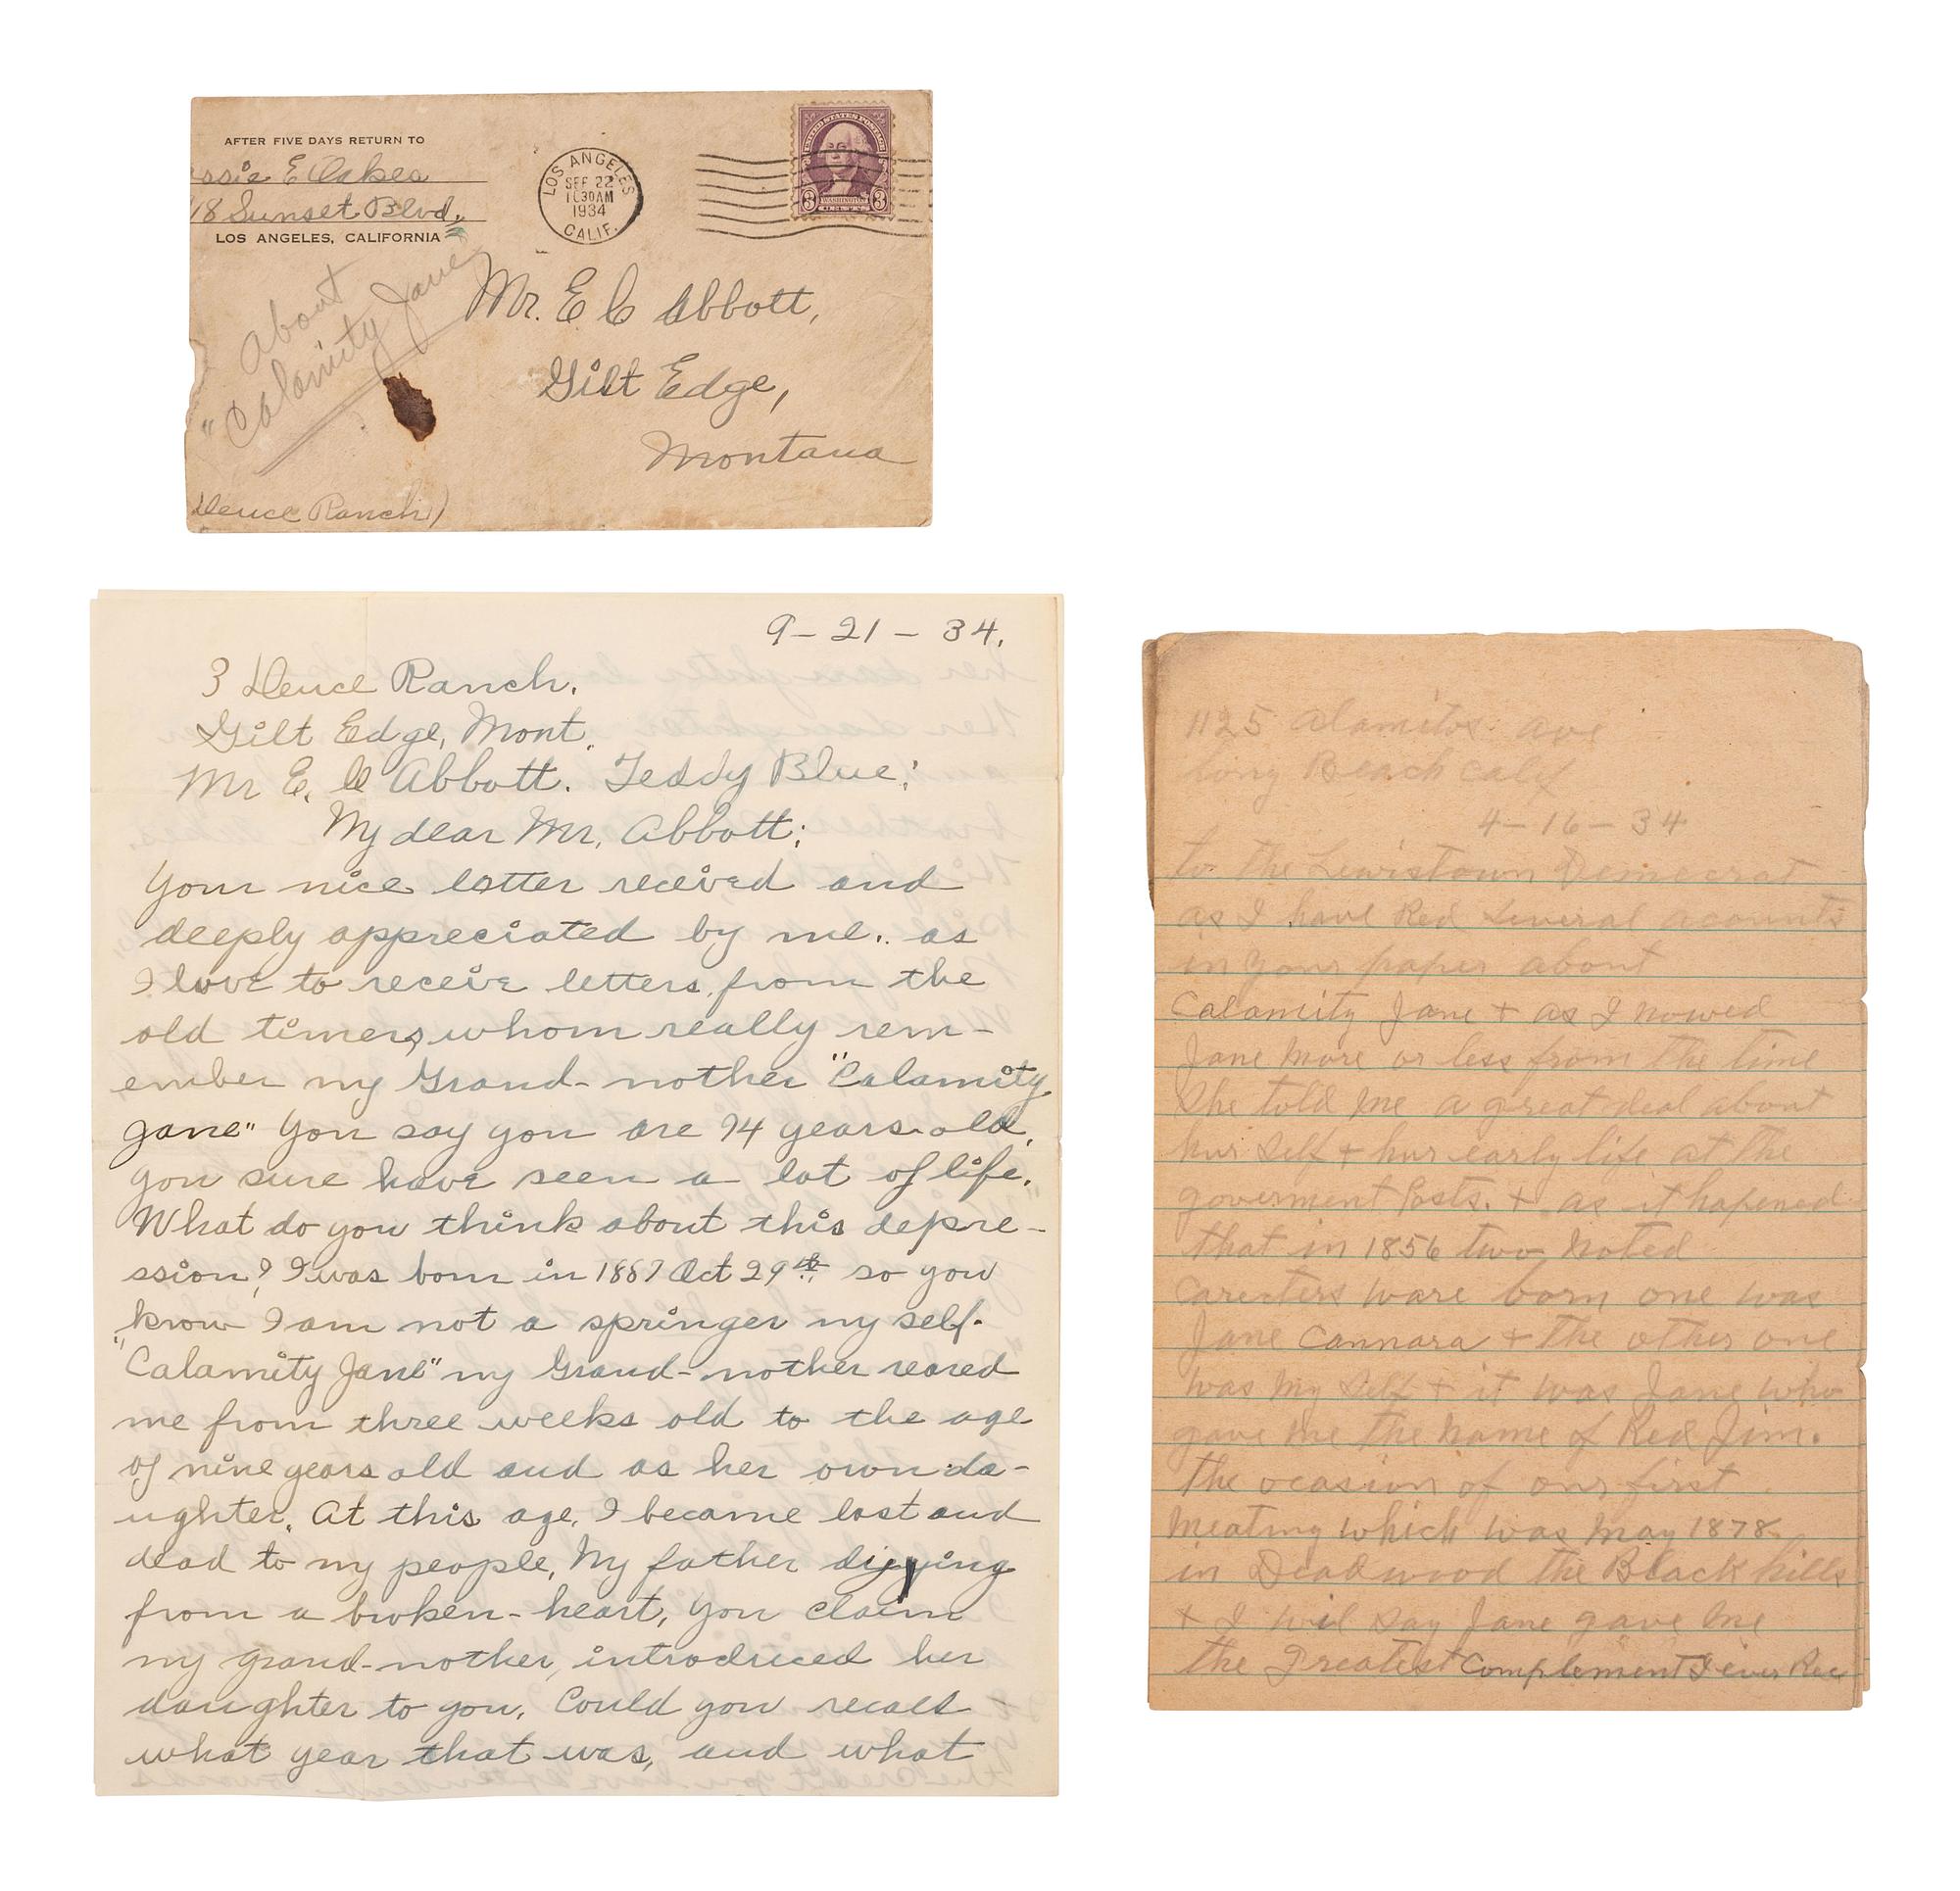 AFTER FIVE DAYS RETURN TO
ssie E Oakes
18 Sunset Blvd.
LOS ANGELES, CALIFORNIA
LOS ANGELES
SEP 22
1934
CALIF.
UNITED STATES POSTAGE
3 WASHINGTON 3
About
"Calamity Jane
?
Mr. E C Abbott,
Gilt Edge,
Montana
Deuce Ranch)
9-21-34.
3 Deuce Ranch.
Gilt Edge, Mont.
Mr E. C Abbott. Teddy Blue:
My dear Mr. Abbott:
Your nice letter received and
deeply appreciated by me. as
I love to receive letters from the
old timers, whom really rem-
ember my Grand-mother "Calamity
Jane" You say you are 74 years old.
you sure have seen a lot of life.
What do you think about this depre-
ssion? I was born in 1887 Oct 29th so you
know I am not a springer my self.
"Calamity Jane" my Grand-mother reared
me from three weeks old to the age
of nine years old and as her own da-
ughter. At this age, I became lost and
dead to my people, My father digying
from a broken-heart, You claim
my grand-mother, introduced her
daughter to you. Could you recall
what year that was, and what
1125 Alamitos ave
long Beach calf
4-16-34
to the Lewistown Democrat
as I have Red several acounts
in your paper about
Calamity Jane + as I nowed
Jane more or less from the time
She told me a great deal about
hur self + hur early life at the
goverment posts. + as it hapened
that in 1856 two noted
Carecters ware born one was
Jane Cannara + the other one
was my self + it was Jane who
gave me the name of Red Jim.
the ocasion of our first
meating which was may 1878
in Deadwood the Black hills
+ I will say Jane gave me
the Greatest Complement I ever Rec